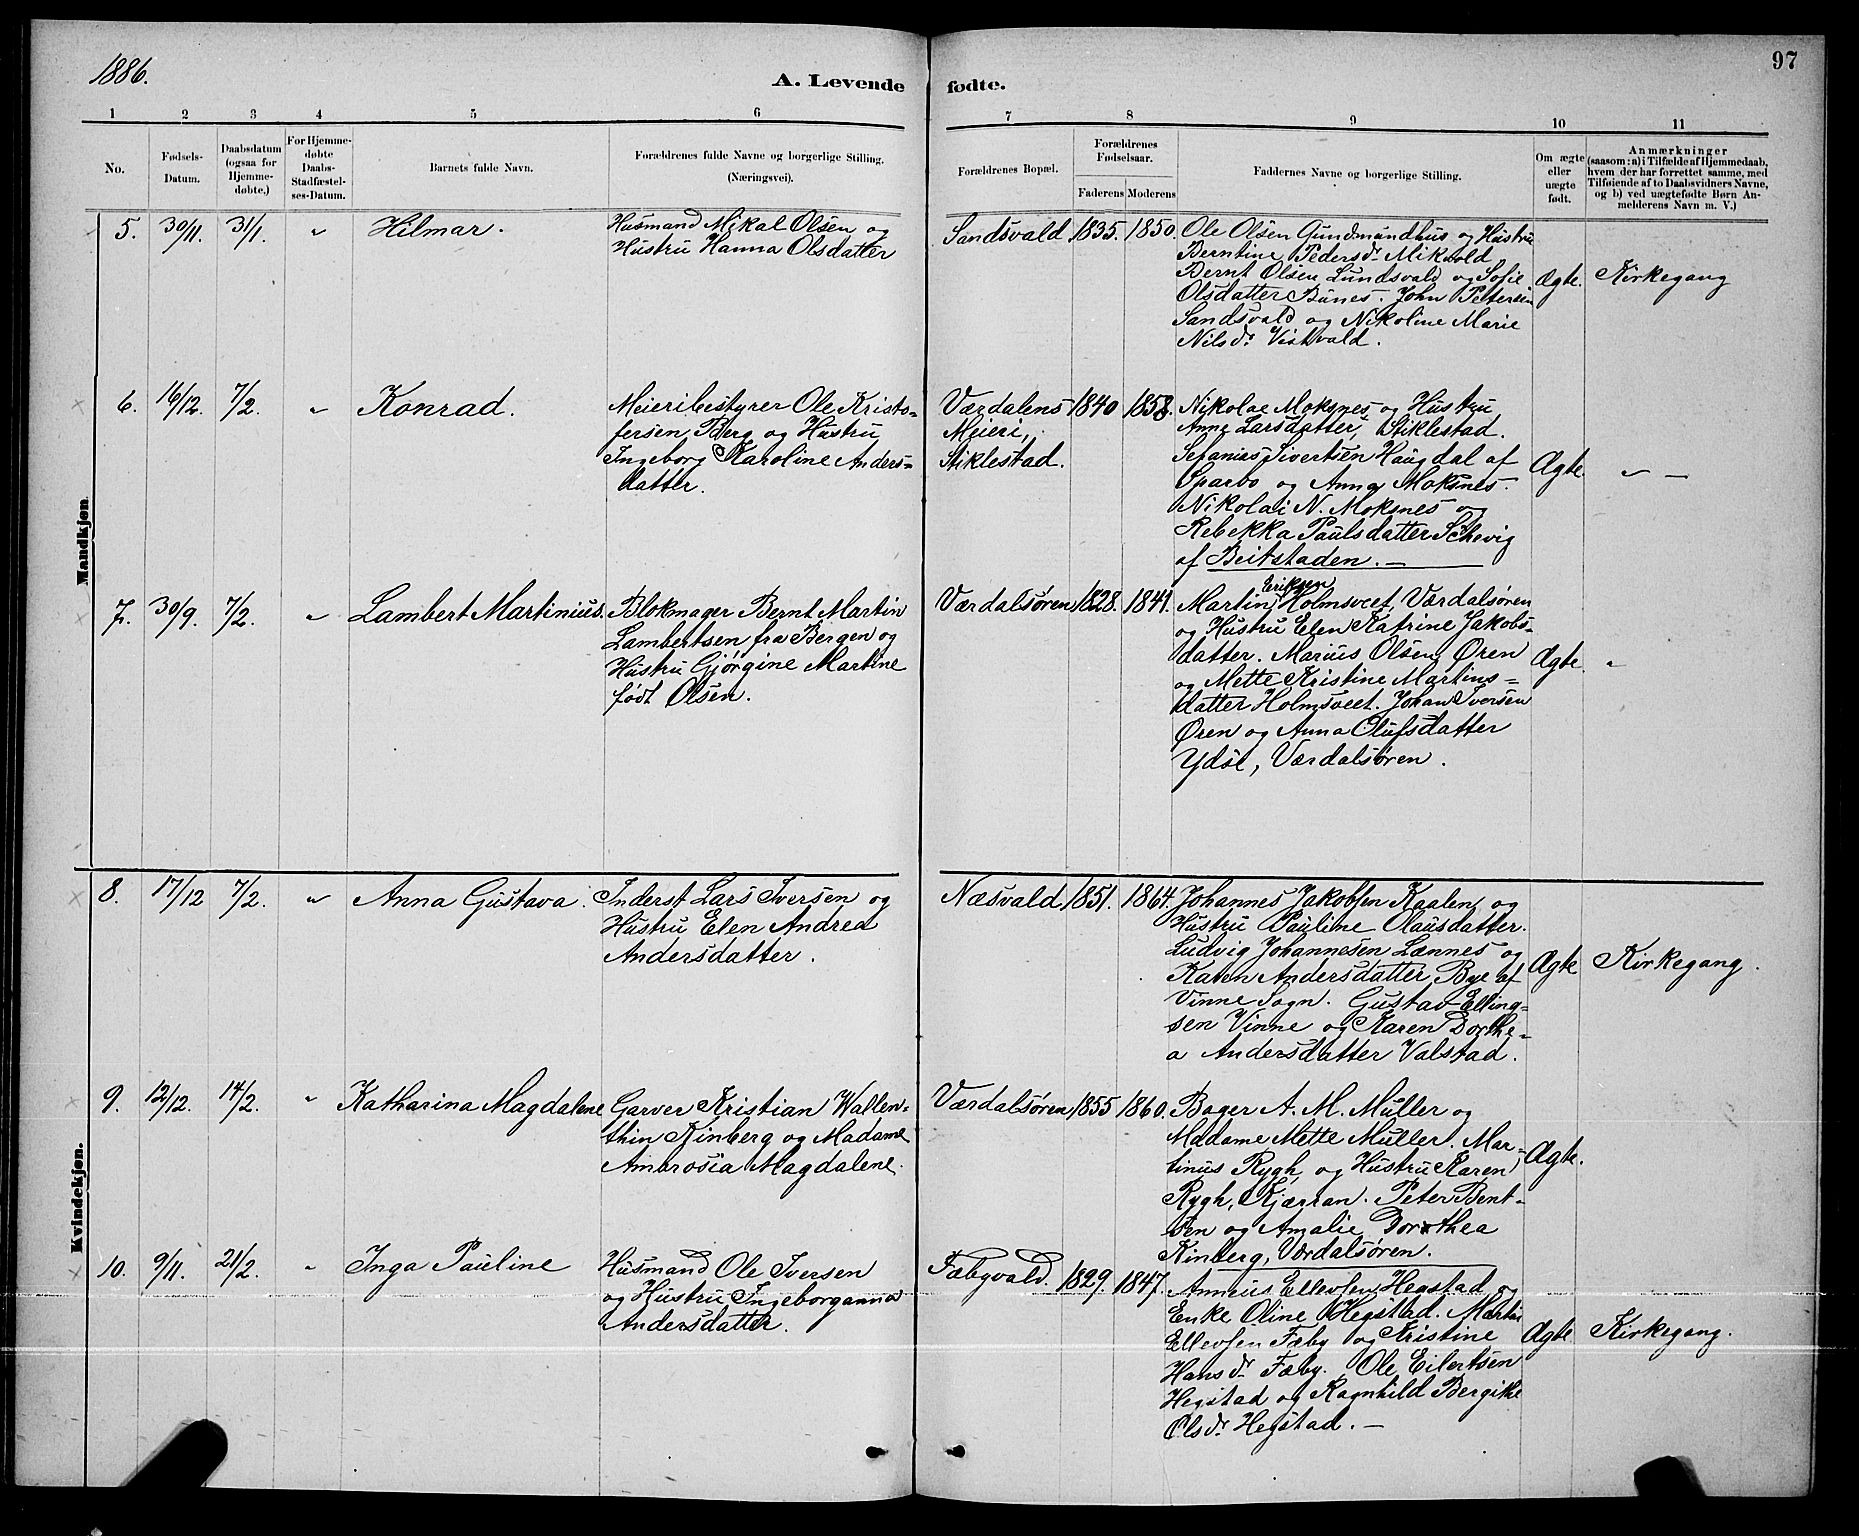 1886.
A. Levende
fødte.
97
1 2 3 4 5 6 7 8 9 10 11
No.
Fødsels-
Datum.
Daabsdatum
(ogsaa for
Hjemme-
døbte.)
For Hjemme-
døbte
Daabs-
Stadfæstel-
ses-Datum.
Barnets fulde Navn.
Forældrenes fulde Navne og borgerlige Stilling.
(Næringsvei).
Forældrenes Bopæl.
Forældrenes
Fødselsaar.
Faderens Moderens
Faddernes Navne og borgerlige Stilling.
Om ægte
eller
uægte
født.
Anmærkninger
(saasom: a) i Tilfælde af Hjemmedaab,
hvem der har forrettet samme, med
Tilføiende af to Daabsvidners Navne,
og b) ved uægtefødte Børn An-
melderens Navn m. V.)
Mandkjøn
5. 30/11. 31/1. " Hilmar.
Husmand Mikal Olsen og
Hustru Hanna Olsdatter
Sandsvald 1835. 1850.
Ole Olsen Gundmundhus og Hustru
Berntine Pedersdr. Mikvold
Bernt Olsen Lundsvald og Sofie
Olsdatter Bunes. John Petersen
Sandsvald og Nikoline Marie
Nilsdr. Vistvald.
Ægte. Kirkegang
6. 16/12. 7/2. " Konrad.
Meieribestyrer Ole Kristo-
fersen Berg og Hustru
Ingeborg Karoline Anders-
datter.
Værdalens
Meieri,
Stiklestad.
1840 1858.
Nikolae Moksnes og Hustru
Anne Larsdatter, Stiklestad.
Sefanias Sivertsen Haugdal af
Sparbo og Anna Moksnes.
Nikolai N. Moksnes og
Rebekka Paulsdatter Schevig
af Beitstaden. —
Ægte. " —
7. 30/9. 7/2. " Lambert Martinius.
Blokmager Bernt Martin
Lambertsen fra Bergen og
Hustru Gjørgine Martine
født Olsen.
Værdalsøren 1828. 1841.
Eriksen
Martin Holmsveet, Værdalsøren
og Hustru Elen Katrine Jakobs-
datter. Marius Olsen Øren
og Mette Kristine Martins-
datter Holmsveet. Johan Iversen
Øren og Anna Olufsdatter
Ydse, Værdalsøren.
Ægte. "
Kvindekjøn.
8. 17/12 7/2. " Anna Gustava.
Inderst Lars Iversen og
Hustru Elen Andrea
Andersdatter.
Næsvald 1851. 1864.
Johannes Jakobsen Kaalen og
Hustru Pauline Olausdatter.
Ludvig Johannesen Lænnes og
Karen Andersdatter Bye af
Vinne Sogn. Gustav Elling-
sen Vinne og Karen Dorthe-
a Andersdatter Valstad.
Ægte Kirkegang.
9. 12/12. 14/2. " Katharina Magdalene
Garver Kristian Wallen-
thin Kinberg og Madame
Ambrosia Magdalene.
Værdalsøren 1855 1860.
Bager A. M. Müller og
Madame Mette Müller. Mar-
tinus Rygh og Hustru Karen
Rygh, Kjærran. Peter Bent-
sen og Amalie Dorothea
Kinberg, Værdalsøren.
Ægte.
10. 9/11. 21/2. " Inga Pauline
Husmand Ole Iversen
og Hustru Ingeborganna
Andersdatter.
Fæbyvald. 1829. 1847.
Anneus Ellevsen Hegstad og
Enke Oline Hegstad. Martin
Ellevsen Fæby og Kristine
Hansdr. Fæby. Ole Eilertsen
Hegstad og Ragnhild Bergithe
Olsdr. Hegstad. —
Ægte Kirkegang.